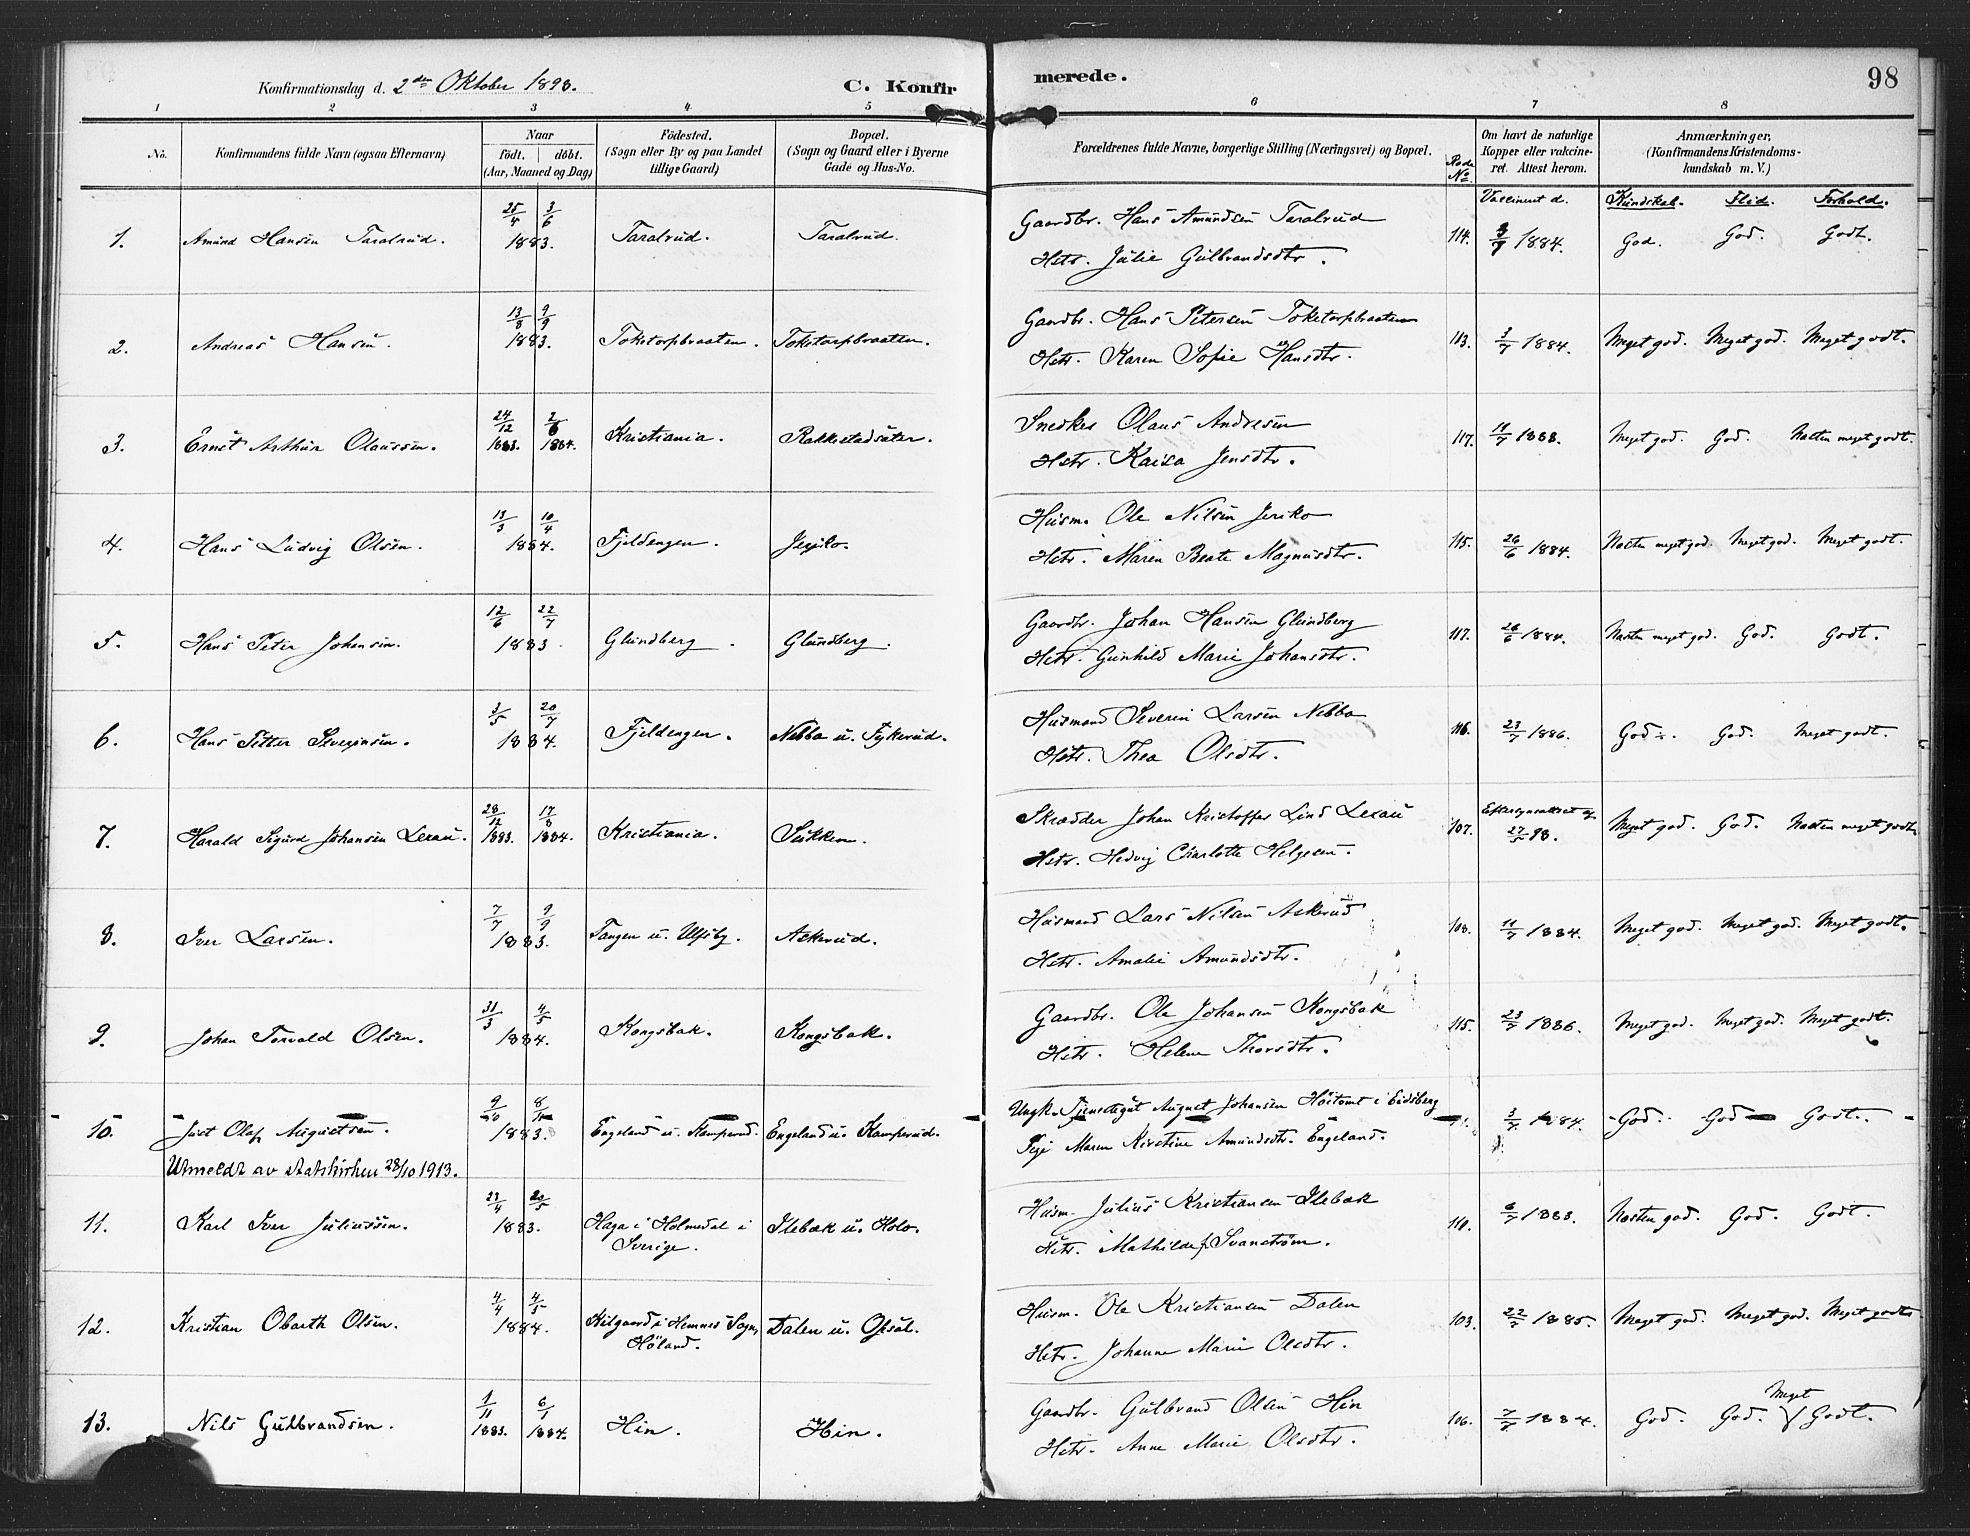 Konfirmationsdag d. 2den Oktober 1898. C. Konfirmerede. 98
1 2 3 4 5 6 7 8
No. Konfirmandens fulde Navn (ogsaa Efternavn) Naar født. døbt. (Aar, Maaned og Dag) Fødested. (Sogn eller By og paa Landet tillige Gaard) Bopæl. (Sogn og Gaard eller i Byerne Gade og Hus-No. Forældrenes fulde Navne, borgerlige Stilling (Næringsvei) og Bopæl. Rode No. Om havt de naturlige Kopper eller vakcineret. Attest herom. Anmærkninger, (Konfirmandens Kristendomskundskab m. V.)
Vaccineret d. Kundskab. Flid. Forhold.
1. Amund Hansen Taralrud. 25/4 3/6 1883. Taralrud. Taralrud. Gaardbr. Hans Amundsen Taralrud
Hstr. Julie Gulbrandsdtr. 114. 1884. God. God. Godt.
2. Andreas Hansen. 13/8 9/9 1883. Toketorpbraaten. Toketorpbraatten. Gaardbr. Hans Petersen Toketorpbraaten
Hstr. Karen Sofie Hansdtr. 113. 3/7 1884. Meget god. Meget god. Meget godt.
3. Ernst Arthur Olaussen. 24/12 1883. 2/6 1884. Kristiania. Rakkestadsæter. Snedker Olaus Andresen
Hstr. Kaisa Jensdtr. 117. 11/7 1888. Meget god. God. Næsten meget godt.
4. Hans Ludvig Olsen. 13/3 10/4 1884. Fjeldengen. Jeriko. Husm. Ole Nilsen Jeriko
Hstr. Maren Beate Magnusdtr. 115. 26/6 1884. Næsten meget god. Meget god. Meget godt.
5. Hans Peter Johansen. 12/6 22/7 1883. Glundberg. Glundberg. Gaardbr. Johan Hansen Glundberg
Hstr. Gunhild Marie Johansdtr. 117. 26/6 1884. Næsten meget god. God. Godt.
6. Hans Petter Severinsen. 3/5 20/7 1884. Fjeldengen. Nebba u. Tykerud. Husmand Severin Larsen Nebba
Hstr. Thea Olsdtr. 116. 23/7 1886. God. God. Meget godt.
7. Harald Sigurd Johansen Lexau. 28/12 1883. 17/8 1884. Kristiania. Sukken. Skrædder Johan Kristoffer Lind Lexau
Hstr. Hedvig Charlotte Helgesen. 107. 27/5 98. Meget god. God. Næsten meget godt.
8. Iver Larsen. 7/7 9/9 1883. Tangen u. Ulfsby. Askerud. Husmand Lars Nilsen Askerud
Hstr. Amalie Amundsdtr. 108. 11/7 1884. Meget god. Meget god. Meget godt.
9. Johan Torvald Olsen. 31/3 4/5 1884. Kongsbak. Kongsbak. Gaardbr. Ole Johansen Kongsbak
Hstr. Helene Thorsdtr. 115. 23/7 1886. Meget god. Meget god. Meget godt.
10. Just Olaf Augustsen. 9/10 8/11 1883. Engeland u. Kamperud. Engeland u. Kamperud. Ungk. Tjenestegut August Johansen Høitomt i Eidsberg
Pige Maren Kirstine Amundsdtr. Engeland. 3/7 1884. God. God. Godt.
Utmeldt av statskirken 28/10 1913.
11. Karl Iver Juliussen. 23/4 20/5 1883. Haga i Holmedal i Sverige. Ilebæk u. Holo. Husm. Julius Kristiansen Ilebæk
Hstr. Mathilde f. Svanstrøm. 110. 6/7 1888. Næsten god. God. Godt.
12. Kristian Obarth Olsen. 4/4 4/5 1884. Kilgaard i Hemnes Sogn, Høland. Dalen u. Ofsal. Husm. Ole Kristiansen Dalen
Hstr. Johanne Marie Olsdtr. 103. 22/7 1885. Meget god. Meget god. Meget godt.
13. Nils Gulbrandsen. 1/11 1883. 6/1 1884. Hin. Hin. Gaardbr. Gulbrand Olsen Hin
Hstr. Anne Marie Olsdtr. 106. 7/7 1884. God. God. Meget Godt.